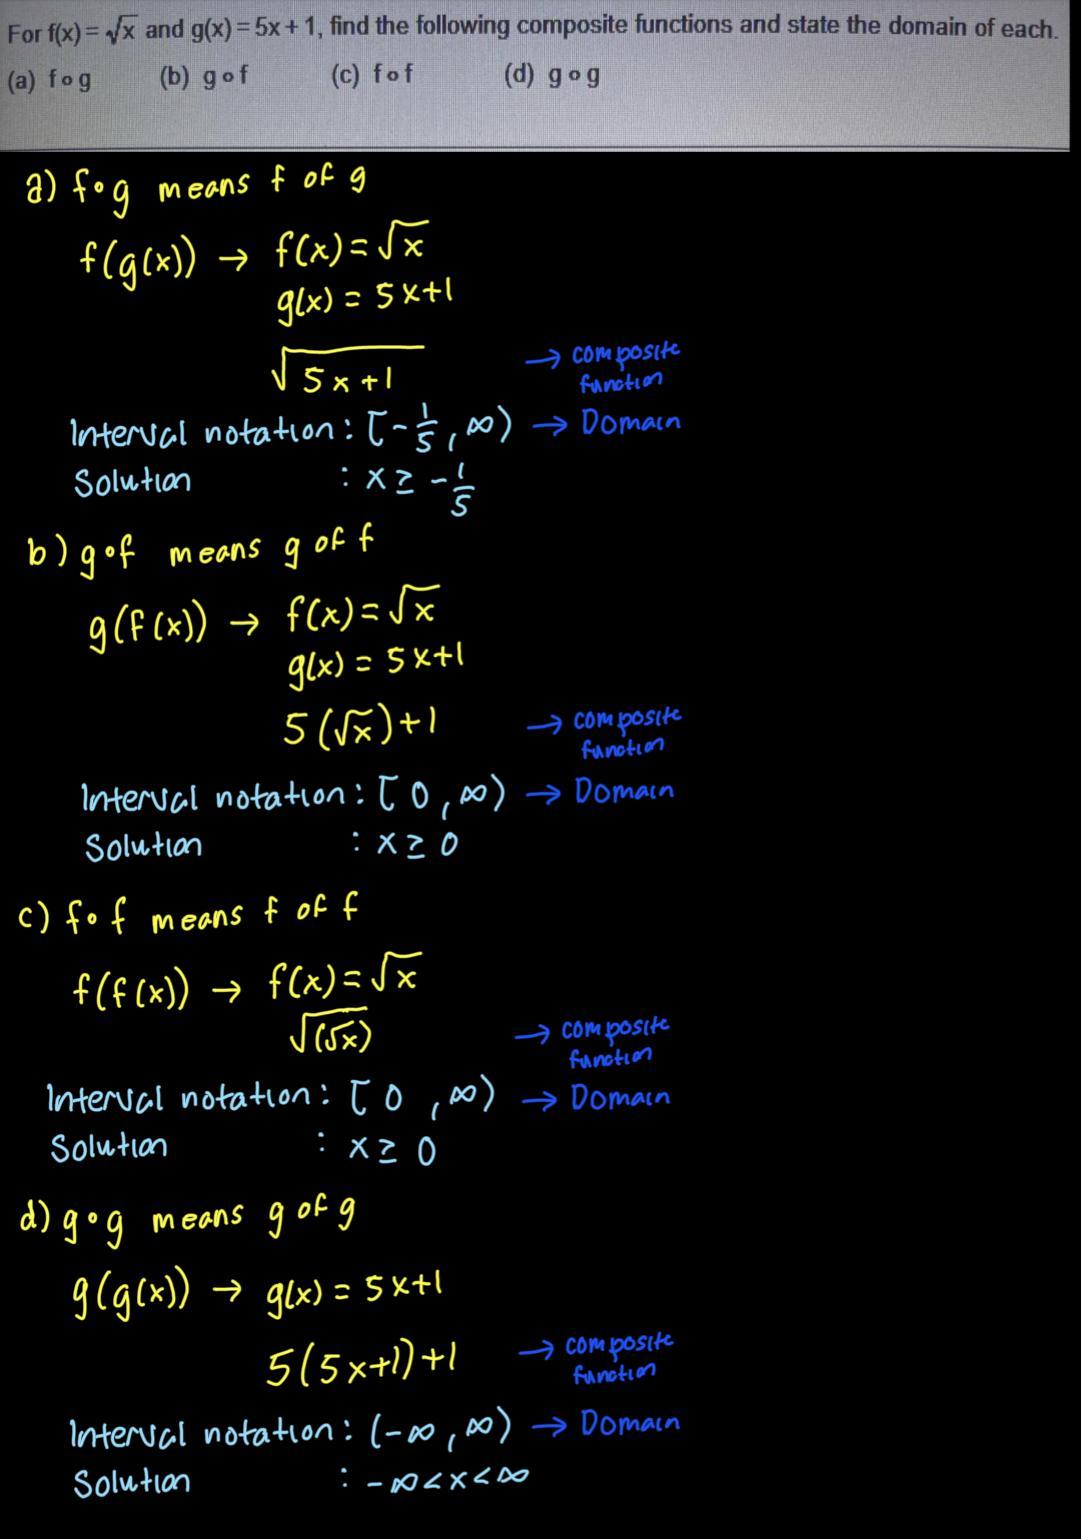 For f(x) = √x and g(x) = 5x + 1, find the following composite functions and state the domain of each.
(a) f∘g (b) g∘f (c) f∘f (d) g∘g
a) f∘g means f of g
f(g(x)) → f(x) = √x
g(x) = 5x+1
√(5x+1) → composite function
Interval notation : [-1/5, ∞) → Domain
Solution : x ≥ -1/5
b) g∘f means g of f
g(f(x)) → f(x) = √x
g(x) = 5x+1
5(√x)+1 → composite function
Interval notation : [0, ∞) → Domain
Solution : x ≥ 0
c) f∘f means f of f
f(f(x)) → f(x) = √x
√(√x) → composite function
Interval notation : [0, ∞) → Domain
Solution : x ≥ 0
d) g∘g means g of g
g(g(x)) → g(x) = 5x+1
5(5x+1)+1 → composite function
Interval notation : (-∞, ∞) → Domain
Solution : -∞ < x < ∞